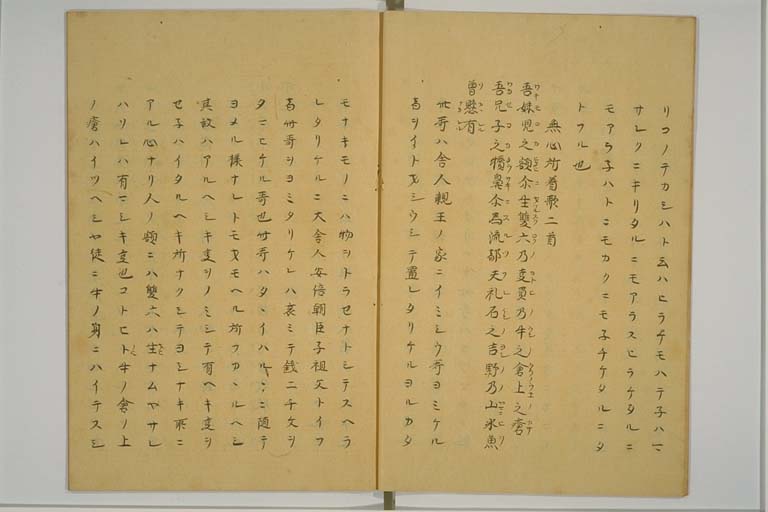 リコノテカシハト云ハヒラテモハテ子ハ一ニ
サレクニキリタルニモアラスヒラケタルニ
モアラ子ハトニモカクニモ子チケタルニタ
トフル也
無心所着歌二首
吾妹児之額尓生雙六乃事負乃牛之倉上之瘡
吾兄子之犢鼻尓為流都夫礼石之吉野乃山尓氷魚
曽懸有
此哥ハ舎人親王ノ家ニイミシウ哥ヨミケル
者ヲイト又ヲウシテ置レタリケルヨルカタ
モナキモノニハ物ヲトラセナトシテスヘラ
レタリケルニ大舎人安倍朝臣子祖父トイフ
者此哥ヲヨミタリケレハ哀ミテ銭二千文ヲ
タニヒケル哥也此哥ハタヽイハルヽニ随テ
ヨメル様ナレトモ又モヘル所フカヽルヘシ
其故ハアルヘシキ事ヲノミシテ有ヘキ事ヲ
セ子ハイタルヘキ所ナクシテヨシナキ所ニ
アル心ナリ人ノ額ニハ雙六ハ生ナムヤサレ
ハリレハ有ニシキ事也コトヒト牛ノ倉ノ上
ノ瘡ハイツヘシヤ徒ニ牛ノ身ニハイテスシ